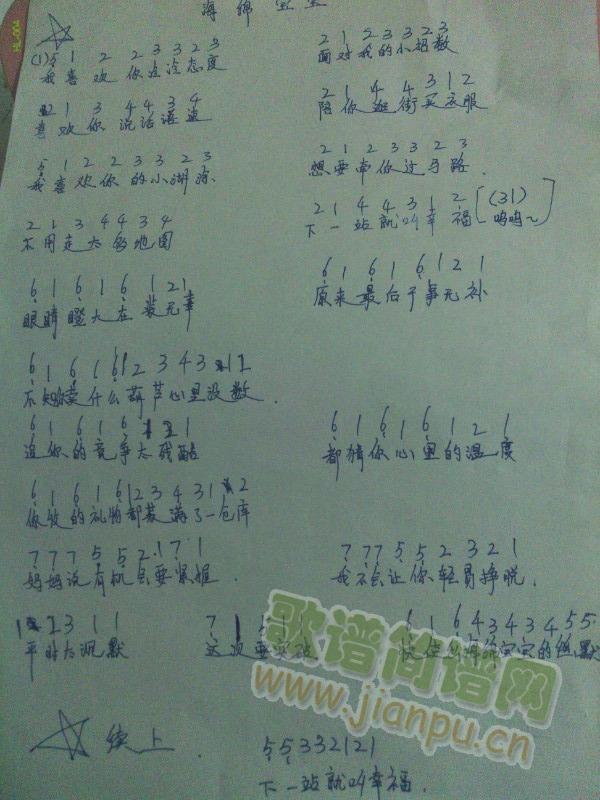 海绵宝宝
(1) 5 1 2 2 3 3 2 3
我喜欢你这态度
2 1 2 3 3 2 3
面对我的小招数
2 1 3 4 4 3 4
喜欢你说话温
2 1 4 4 3 1 2
陪你逛街买衣服
5 1 2 2 3 3 2 3
我喜欢你的小胡
2 1 2 3 3 2 3
想要带你过马路
2 1 3 4 4 3 4
不用走大的地图
2 1 4 4 3 1 2 [(31)
下一站就叫幸福 呜呜~]
6 1 6 1 6 1 2 1
眼睛瞪大在装无辜
6 1 6 1 6 1 2 1
原来最后于事无补
6 1 6 1 6 1 2 3 4 3 1 2
不知你卖什么葫芦心里没数
6 1 6 1 6 1 2 1
追你的竞争太残酷
6 1 6 1 6 1 2 1
都猜你心里的温度
6 1 6 1 6 1 2 3 4 3 1 2
你收的礼物都装满了一仓库
7 7 7 5 5 2 1 7 1
妈妈说有机会要紧握
7 7 7 5 5 2 3 2 1
我不会让你轻易挣脱
2 3 1 1
平时太沉默
7 1
这次要
6 1 6 4 3 4 3 4 5 5
海绵宝宝的幽默
续上
5 5 3 3 2 1 2 1
下一站就叫幸福
歌谱简谱网
www.jianpu.cn